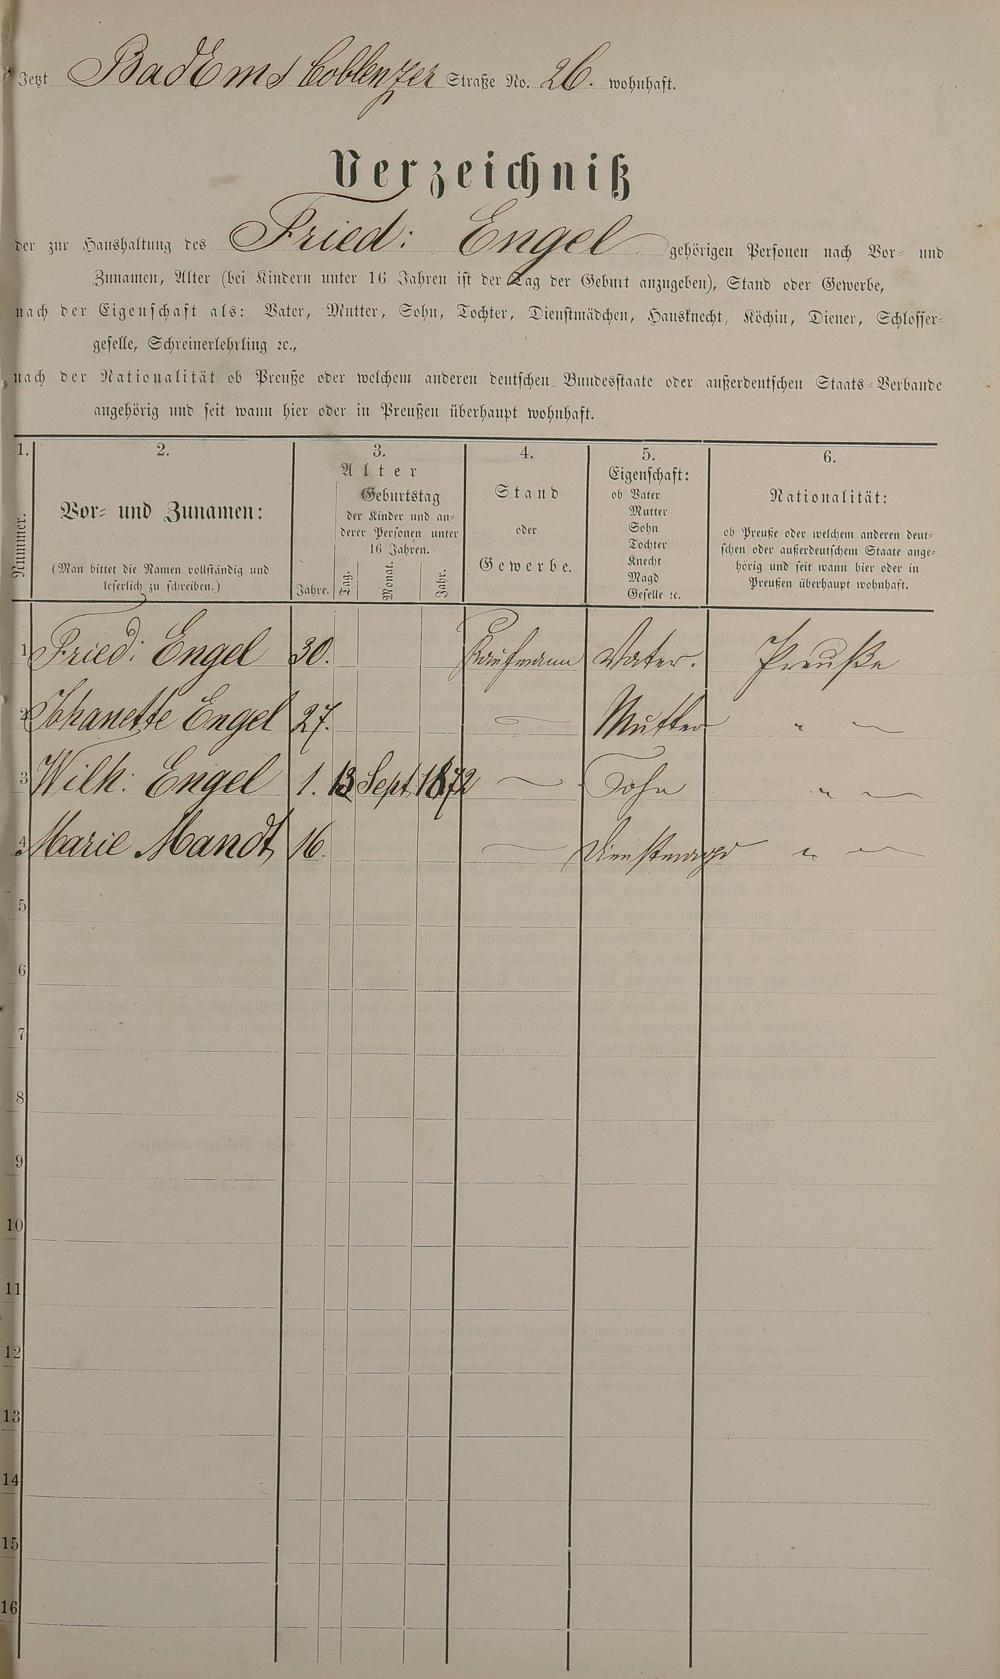 Jetzt Bad Ems Coblenzer Straße No. 26. wohnhaft.
Verzeichniß
der zur Haushaltung des Fried: Engel gehörigen Personen nach Vor- und
Zunamen, Alter (bei Kindern unter 16 Jahren ist der Tag der Geburt anzugeben), Stand oder Gewerbe,
nach der Eigenschaft als: Vater, Mutter, Sohn, Tochter, Dienstmädchen, Hausknecht, Köchin, Diener, Schlosser-
geselle, Schreinerlehrling ꝛc.,
nach der Nationalität ob Preuße oder welchem anderen deutschen Bundesstaate oder außerdeutschen Staats-Verbande
angehörig und seit wann hier oder in Preußen überhaupt wohnhaft.
1. 2. 3. 4. 5. 6.
Nummer.
Vor- und Zunamen:
(Man bittet die Namen vollständig und
leserlich zu schreiben.)
Alter
Geburtstag
der Kinder und an-
derer Personen unter
16 Jahren.
Jahre. Tag. Monat. Jahr.
Stand
oder
Gewerbe.
Eigenschaft:
ob Vater
Mutter
Sohn
Tochter
Knecht
Magd
Geselle ꝛc.
Nationalität:
ob Preuße oder welchem anderen deut-
schen oder außerdeutschem Staate ange-
hörig und seit wann hier oder in
Preußen überhaupt wohnhaft.
1 Fried: Engel 30. Kaufmann Vater. Preuße
2 Johanette Engel 27. — Mutter " —
3 Wilh: Engel 1. 13 Sept. 1872 — Sohn " —
4 Marie Mandt 16. — Dienstmagd " —
5
6
7
8
9
10
11
12
13
14
15
16